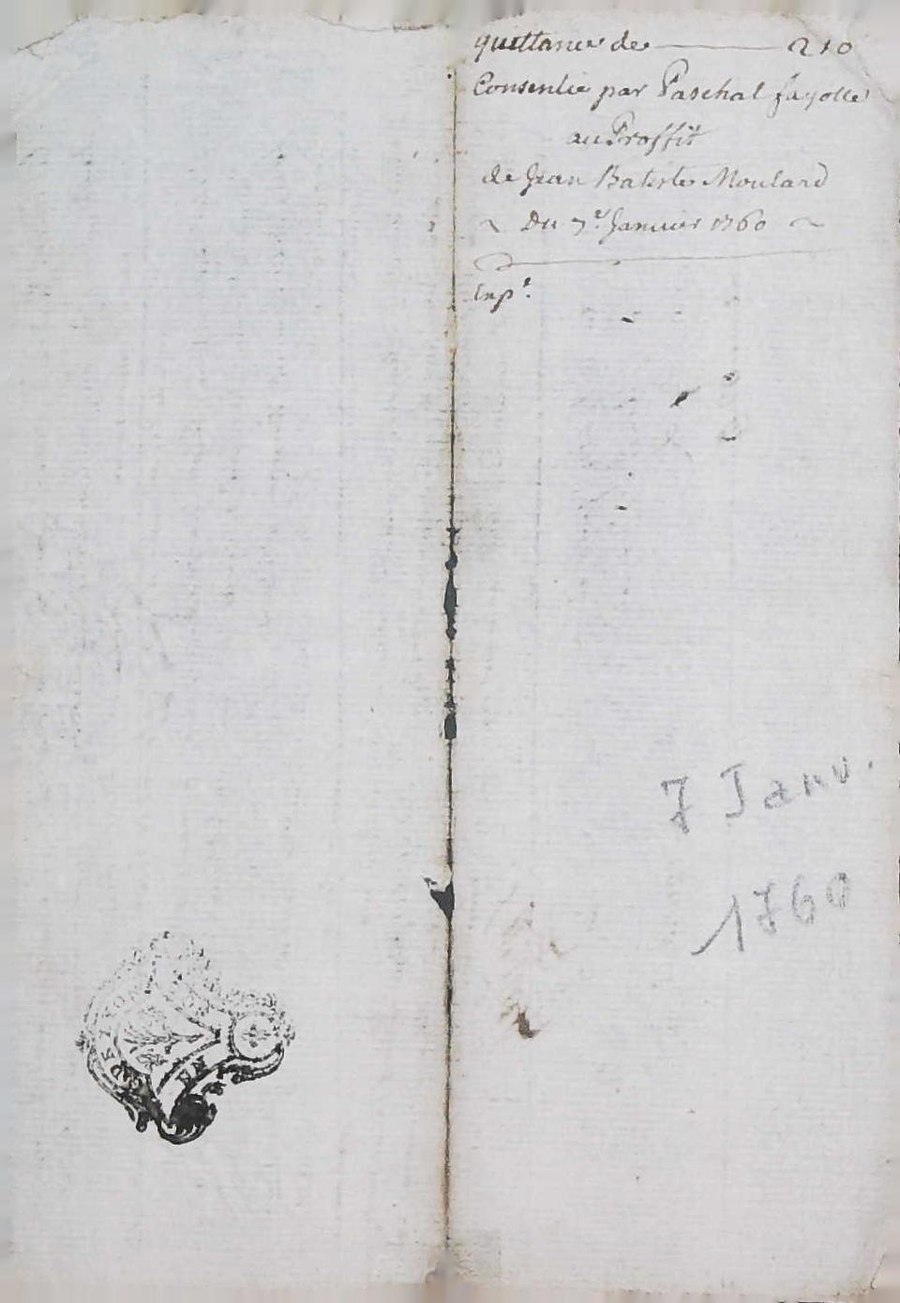 quittance de 210
Consentie par Paschal fayolle
au Proffit
de Jean Batiste Moulard
~ Du 7e Janvier 1760 ~
Exp.e
7 Janv.
1760